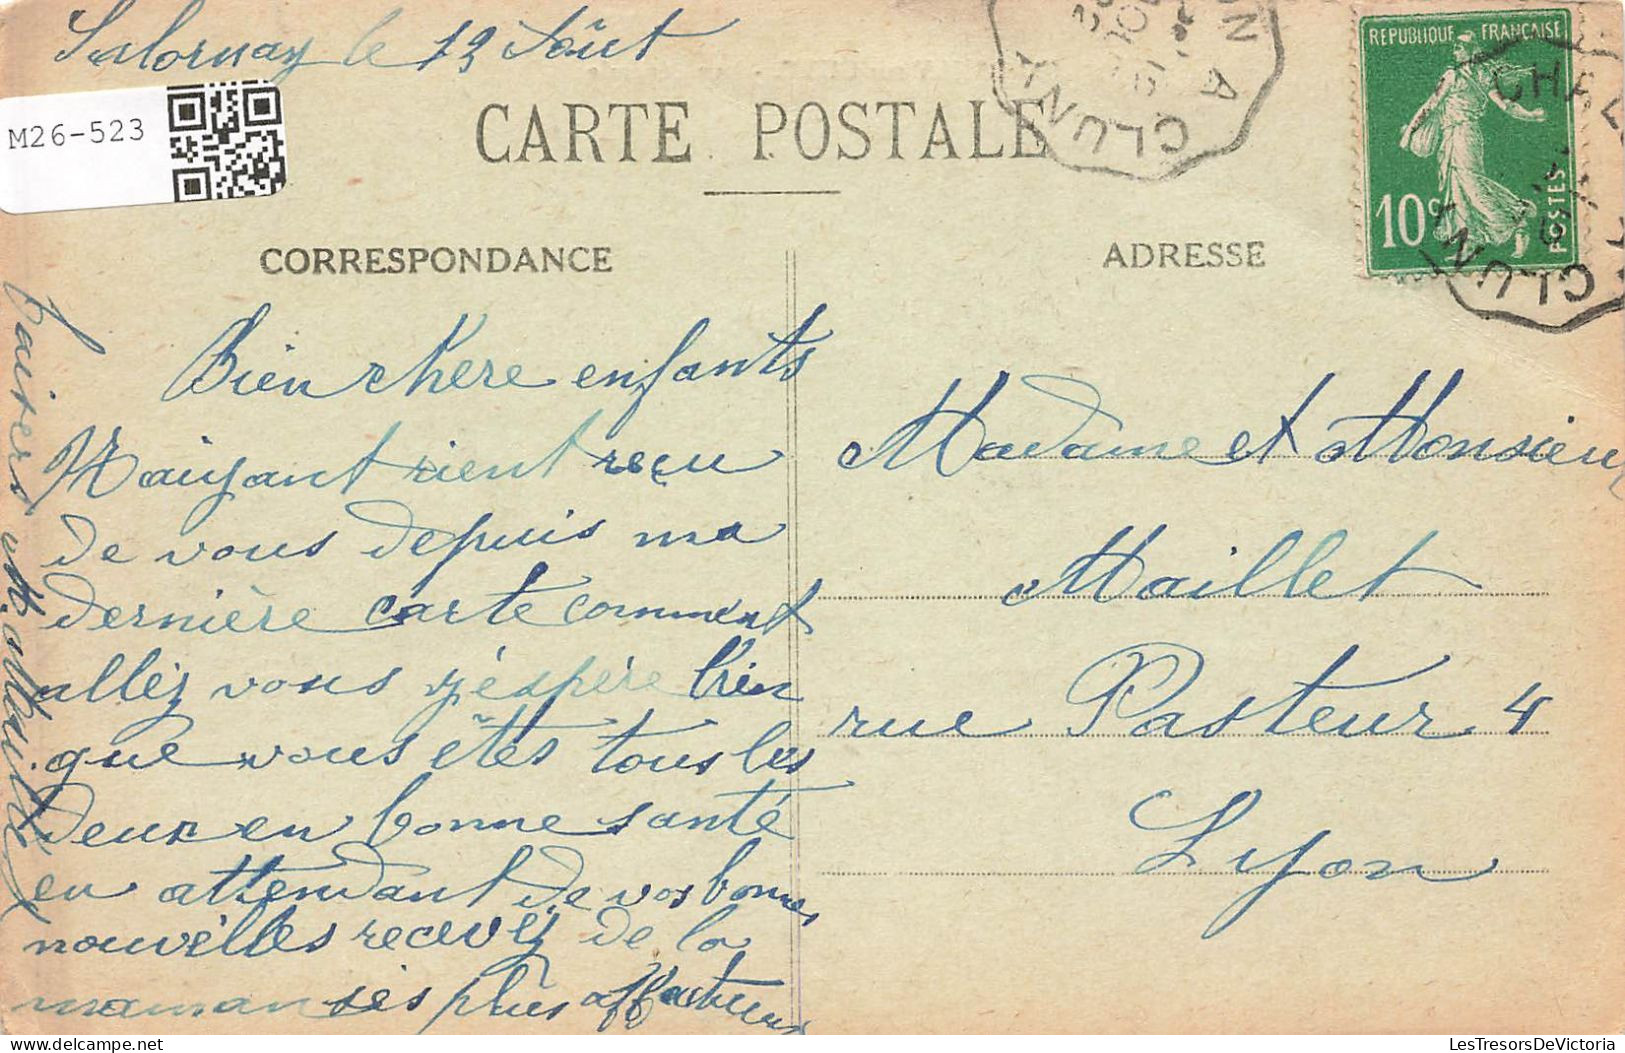 Salornay le 19 Août
M26-523
CARTE POSTALE
CORRESPONDANCE
ADRESSE
REPUBLIQUE FRANÇAISE
10c
POSTES
CLUNY
CLUNY
Bien chere enfants
N'aiyant rient reçu
de vous depuis ma
dernière carte comment
allez vous j'éspère bien
que vous êtes tous les
deux en bonne santé
en attendant de vos bonnes
nouvèlles recevez de la
maman ses plus affectueux
baisers
Madame et Monsieur
Maillet
rue Pasteur 4
Lyon
LesTresorsDeVictoria